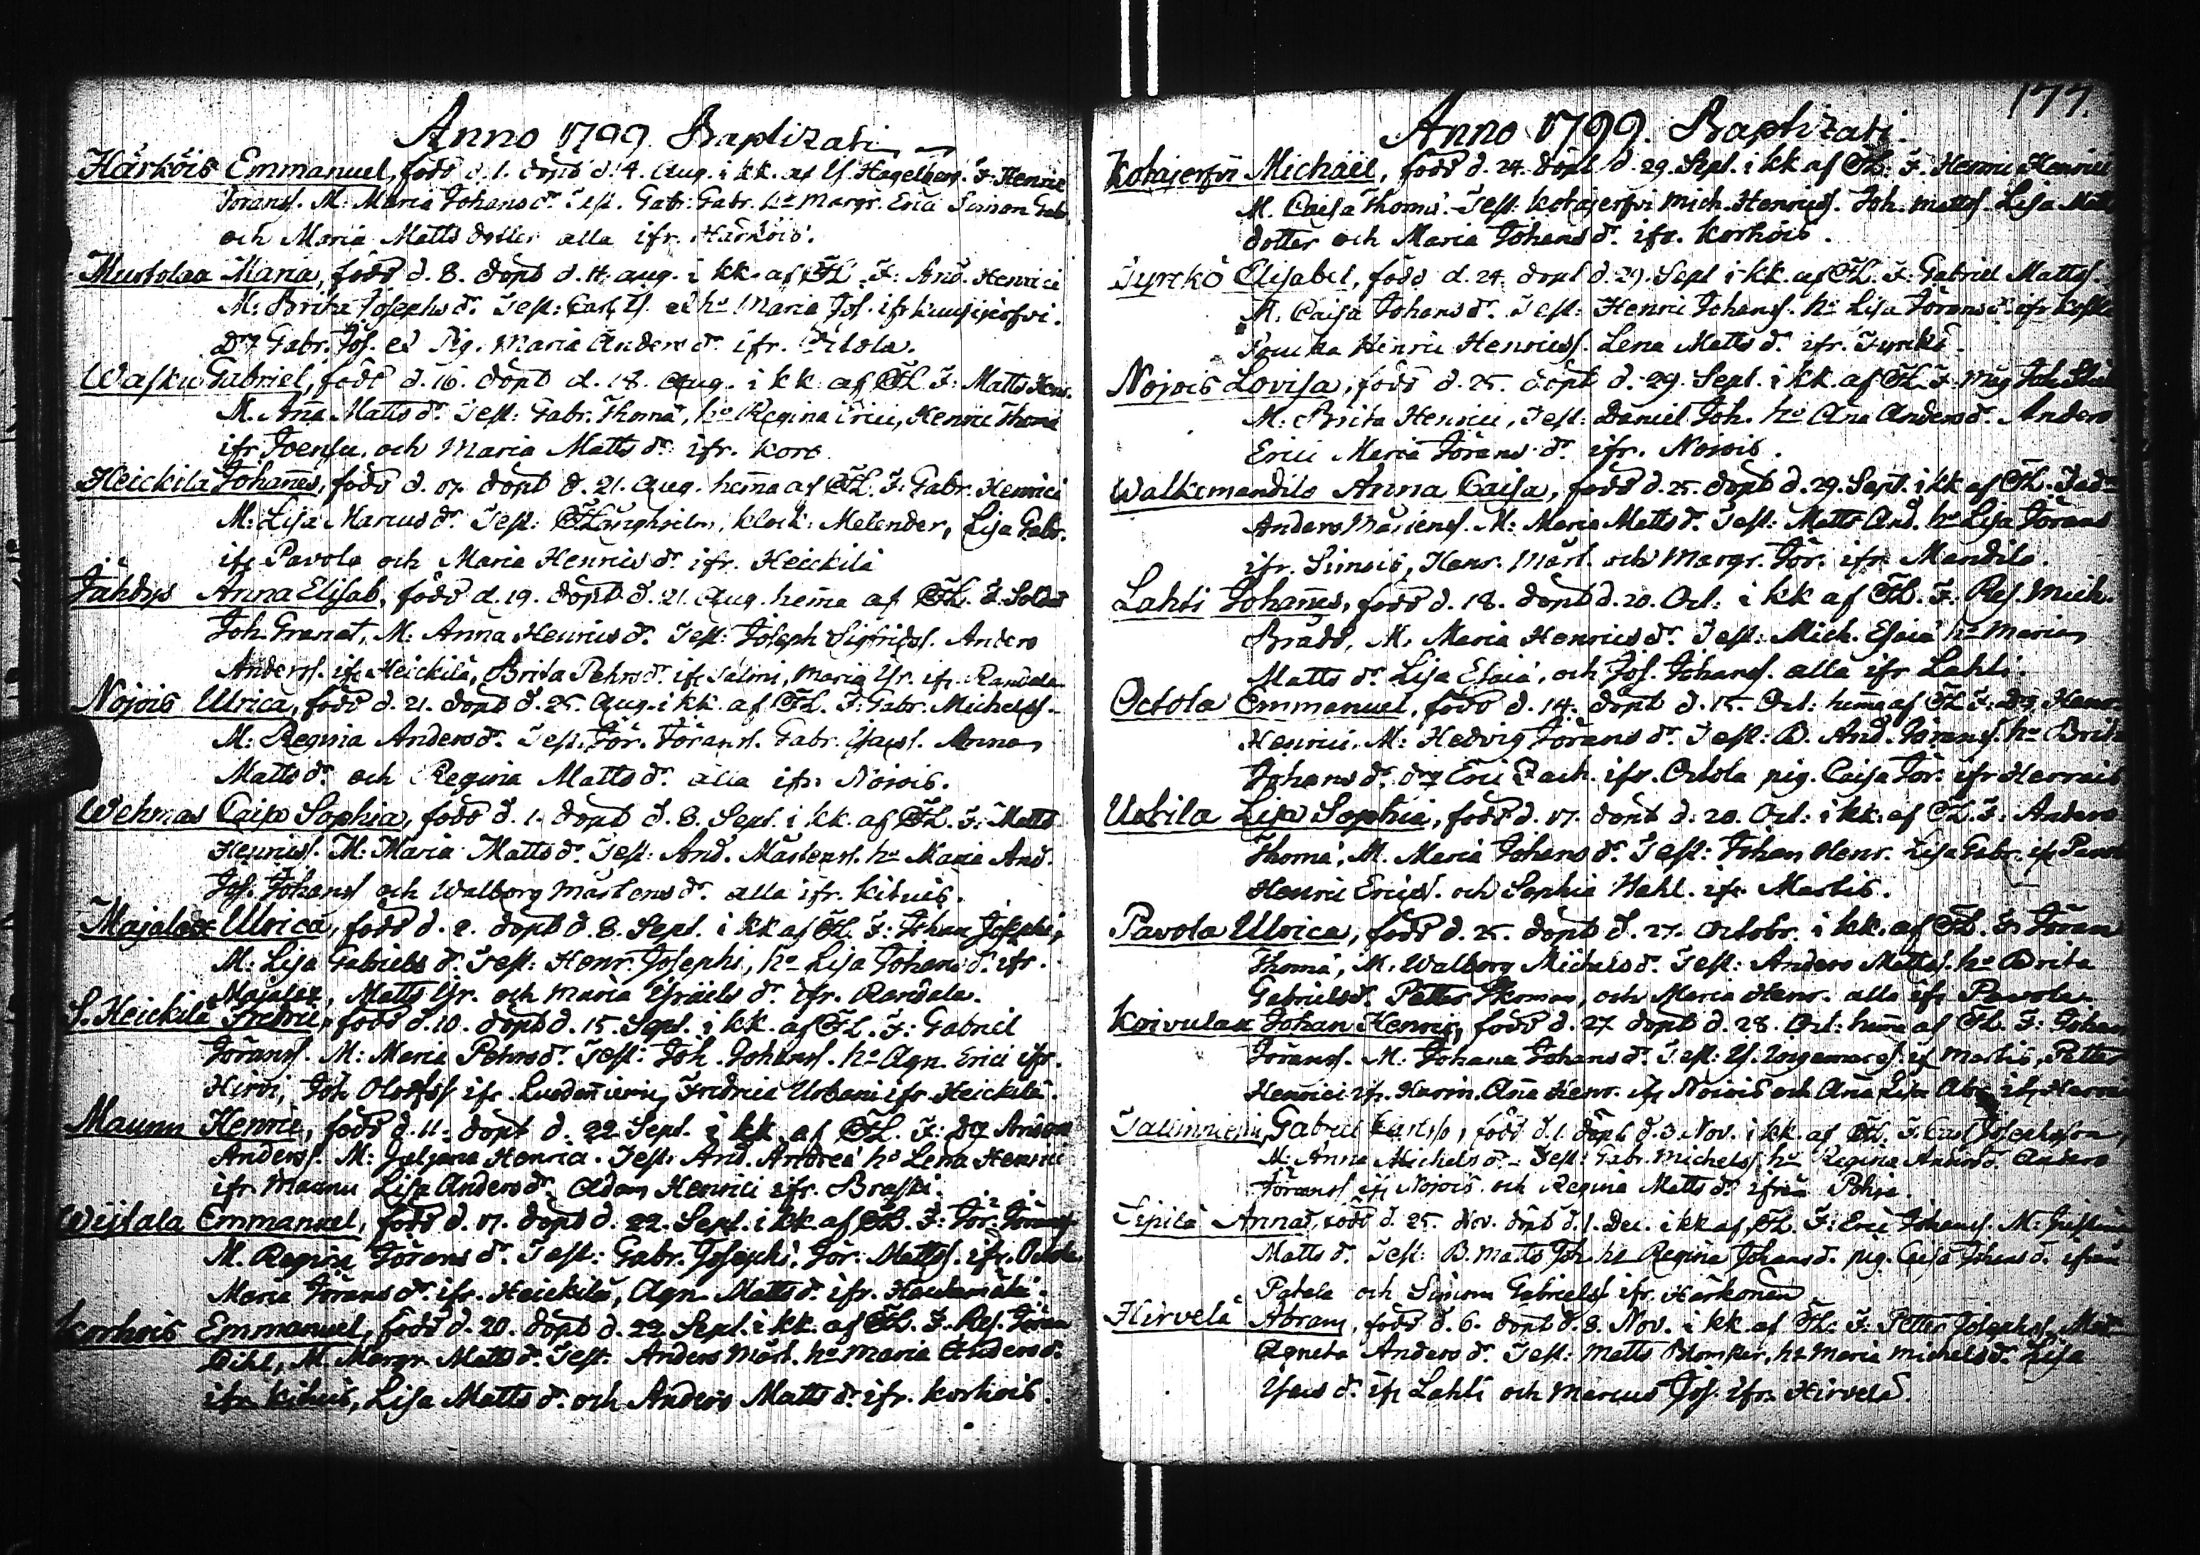 Anno 1799. Baptizati
Härköis Emmanuel, född d. 1. döpt d. 4. Aug. i kk. af Is. Hagelberg. F: Henric
Joranss. M: Maria Johansdr. Test. Gabr: Gabr. hu Margr. Erici Simon Gabr.
och Maria Matts dotter alla ifr. Härköis.
Mustolax Maria, född d. 8. döpt d. 11. aug. i kk. af FL. F: And. Henrici
M: Brita Josephs dr. Test: Carl Is. et hu Maria Jos. ifr
Dg Gabr. Jos. et Pig. Maria Anders dr. ifr.
Wasku Gabriel, född d. 16. döpt d. 18. Aug. i kk. af FL. F: Matts Hens.
M. Ana Matts dr. Test: Gabr. Thomæ, hu Regina Erici, Henric Thomæ
ifr Joensu och Maria Matts dr. ifr. Koro
Heickilä Johañes, född d. 17. döpt d. 21. Aug. hem̃a af FL. F: Gabr. Henrici
M: Lisa Marcus dr. Test: klock: Melender, Lisa Gabr.
ifr Pavola och Maria Henrics dr. ifr. Heickilä
Jähdys Anna Elisab. född d. 19. döpt d. 21. Aug. hem̃a af FL. F. Soldat
Joh. Granat, M: Anna Henrics dr. Test: Joseph Sigfridss. Anders
Anderss. ifr Heickilä, Brita Pehrs dr. ifr Salmi, Maria Isr. ifr. Randala
Nojois Ulrica, född d. 21. döpt d. 25. Aug. i kk. af FL. F: Gabr. Michelss.
M: Regina Anders dr. Test. Jör. Jöranss. Gabr. Isacs. Anna
Matts dr. och Regina Matts dr. alla ifr. Nojois.
Wehmas Caisa Sophia, född d. 1. döpt d. 8. Sept. i kk. af FL. F: Matts
Henricss. M: Maria Matts dr. Test: And. Mårtenss. hu Maria And.
Jos. Johanss och Walborg Mårtens dr. alla ifr. Kituis.
Majalax Ulrica, född d. 2. döpt d. 8. Sept. i kk af FL. F: Johan Josephi,
M: Lisa Gabriels dr. Test: Henr. Josephi, hu Lisa Johans dr. ifr.
Majalax, Matts Isr. och Maria Israels dr. ifr. Randala.
S. Heickilä Fredric, född d. 10. döpt d. 15. Sept. i kk. af FL. F: Gabriel
Jöranss. M: Maria Pehrs dr. Test: Joh. Johanss. hu Agn. Erici ifr.
Hirvi, Joh Olofss ifr. Fredrica Urbani ifr. Heickilä.
Maunu Henric, född d. 11. döpt d. 22. Sept. i kk af FL. F: Dg Anders
Anderss. M: Juljana Henrici. Test: And. Andreæ hu Lena Henrici
ifr. Maunu Lisa Anders dr. Adam Henrici ifr. Braski.
Weistala Emmanuel, född d. 17. döpt d. 22. Sept. i kk af FL. F: Jör. Jöranss
M. Regina Jörans dr. Test: Gabr. Josephi. Jör. Mattss. ifr. Octola
Maria Jörans dr. ifr. Heickilä, Agn Matts dr. ifr.
Korhois Emmanuel, född d. 20. döpt d. 22. Sept. i kk. af FL. F. Res. Jöran
Dihl, M. Margr. Matts dr. Test. Anders Mårt. hu Maria Anders dr.
ifr. Kituis, Lisa Matts dr. och Anders Matts dr. ifr. Korhois.
177.
Anno 1799. Baptizati.
Kotajerfvi Michaël, född d. 24. döpt d. 29. Sept. i kk af FL: F. Henric Henrici
M. Caisa Thomæ. Test: Kotajerfvi Mich. Henricss. Joh. Mattss. Lisa Matts
dotter och Maria Johans dr. ifr. Korhois.
Tyrckö Elisabet, född d. 24. döpt d. 29. Sept i kk. af FL. F. Gabriel Mattss.
M. Caisa Johans dr. Test: Henric Johanss. hu Lisa Jörans dr. ifr
Henric Henricss. Lena Matts dr. ifr. Tyrckö.
Nojois Lovisa, född d. 25. döpt d. 29. Sept. i kk. af FL. F. Mag Joh.
M: Brita Henrici, Test: Daniel Joh. hu Ana Anders dr. Anders
Erici Maria Jörans dr. ifr. Nojois.
Walkemandila Anna Caisa, född d. 25. döpt d. 29. Sept. i kk af FL.
Anders Mårtenss. M: Maria Matts dr. Test: Matts And. hu Lisa Jörans
ifr. Simois, Henr. Mårt. och Margr. Jör. ifr. Mandila.
Lahti Johañes, född d. 18. döpt d. 20. Oct: i kk af FL. F: Res. Mich.
Brådd, M. Maria Henrics dr. Test: Mich. Esaiæ hu Maria
Matts dr. Lisa Esaiæ, och Jos. Johanss. alla ifr Lahti.
Octola Emmanuel, född d. 14. döpt d. 15. Oct: hem̃a af FL. F: Dg Henr.
Henrici. M: Hedvig Jörans dr. Test: B. And. Jöranss. hu Brita
Johans dr. Drg Eric Zach. ifr. Octola pig. Caisa Jör. ifr Herrais
Uotila Lisa Sophia, född d. 17. döpt d. 20. Oct: i kk. af FL. F: Anders
Thomæ, M. Maria Johans dr. Test: Johan Henr. Lisa Gabr. ifr
Henric Ericss. och Sophia Wahl. ifr. Martis.
Pavola Ulrica, född d. 25. döpt d. 27. Octobr. i kk. af FL. F. Jöran
Thomæ, M. Walborg Michels dr. Test: Anders Mattss. hu Brita
Gabriels dr. Petter Ekman, och Maria Henr. alla ifr Pavola
Koivulax Johan Henric, född d. 27 döpt d. 28. Oct: hem̃a af FL. F: Johan
Jöranss. M: Johana Johans dr. Test: Is. ifr Martis, Petter
Henrici ifr. Ana Henr. ifr Nojois och Ana Lisa Abr. ifr
Taliniemi Gabriel Carlsso, född d. 1. döpt d. 3. Nov. i kk. af FL. F. Carl Josephsson,
M: Anna Michels dr. Test: Gabr. Michelss. hu Regina Anders dr. Anders
Jöranss. ifr Nojois och Regina Matts dr. ifrån
Sepilä Anna, född d. 25. Nov. döpt d. 1. Dec. i kk af FL. F: Eric Johanss. M:
Matts dr. Test: B. Matts Joh. hu Regina Johans dr. pig. Caisa Johans dr. ifrån
och Simon Gabrielss ifr. Härkönen
Hirvelä Abram, född d. 6. döpt d. 8. Nov. i kk af FL. F: Petter Josephss.
Agneta Anders dr. Test: Matts hu Maria Michels dr. Lisa
Isacs dr. ifr Lahti och Marcus Jos. ifr. Hirvelä.